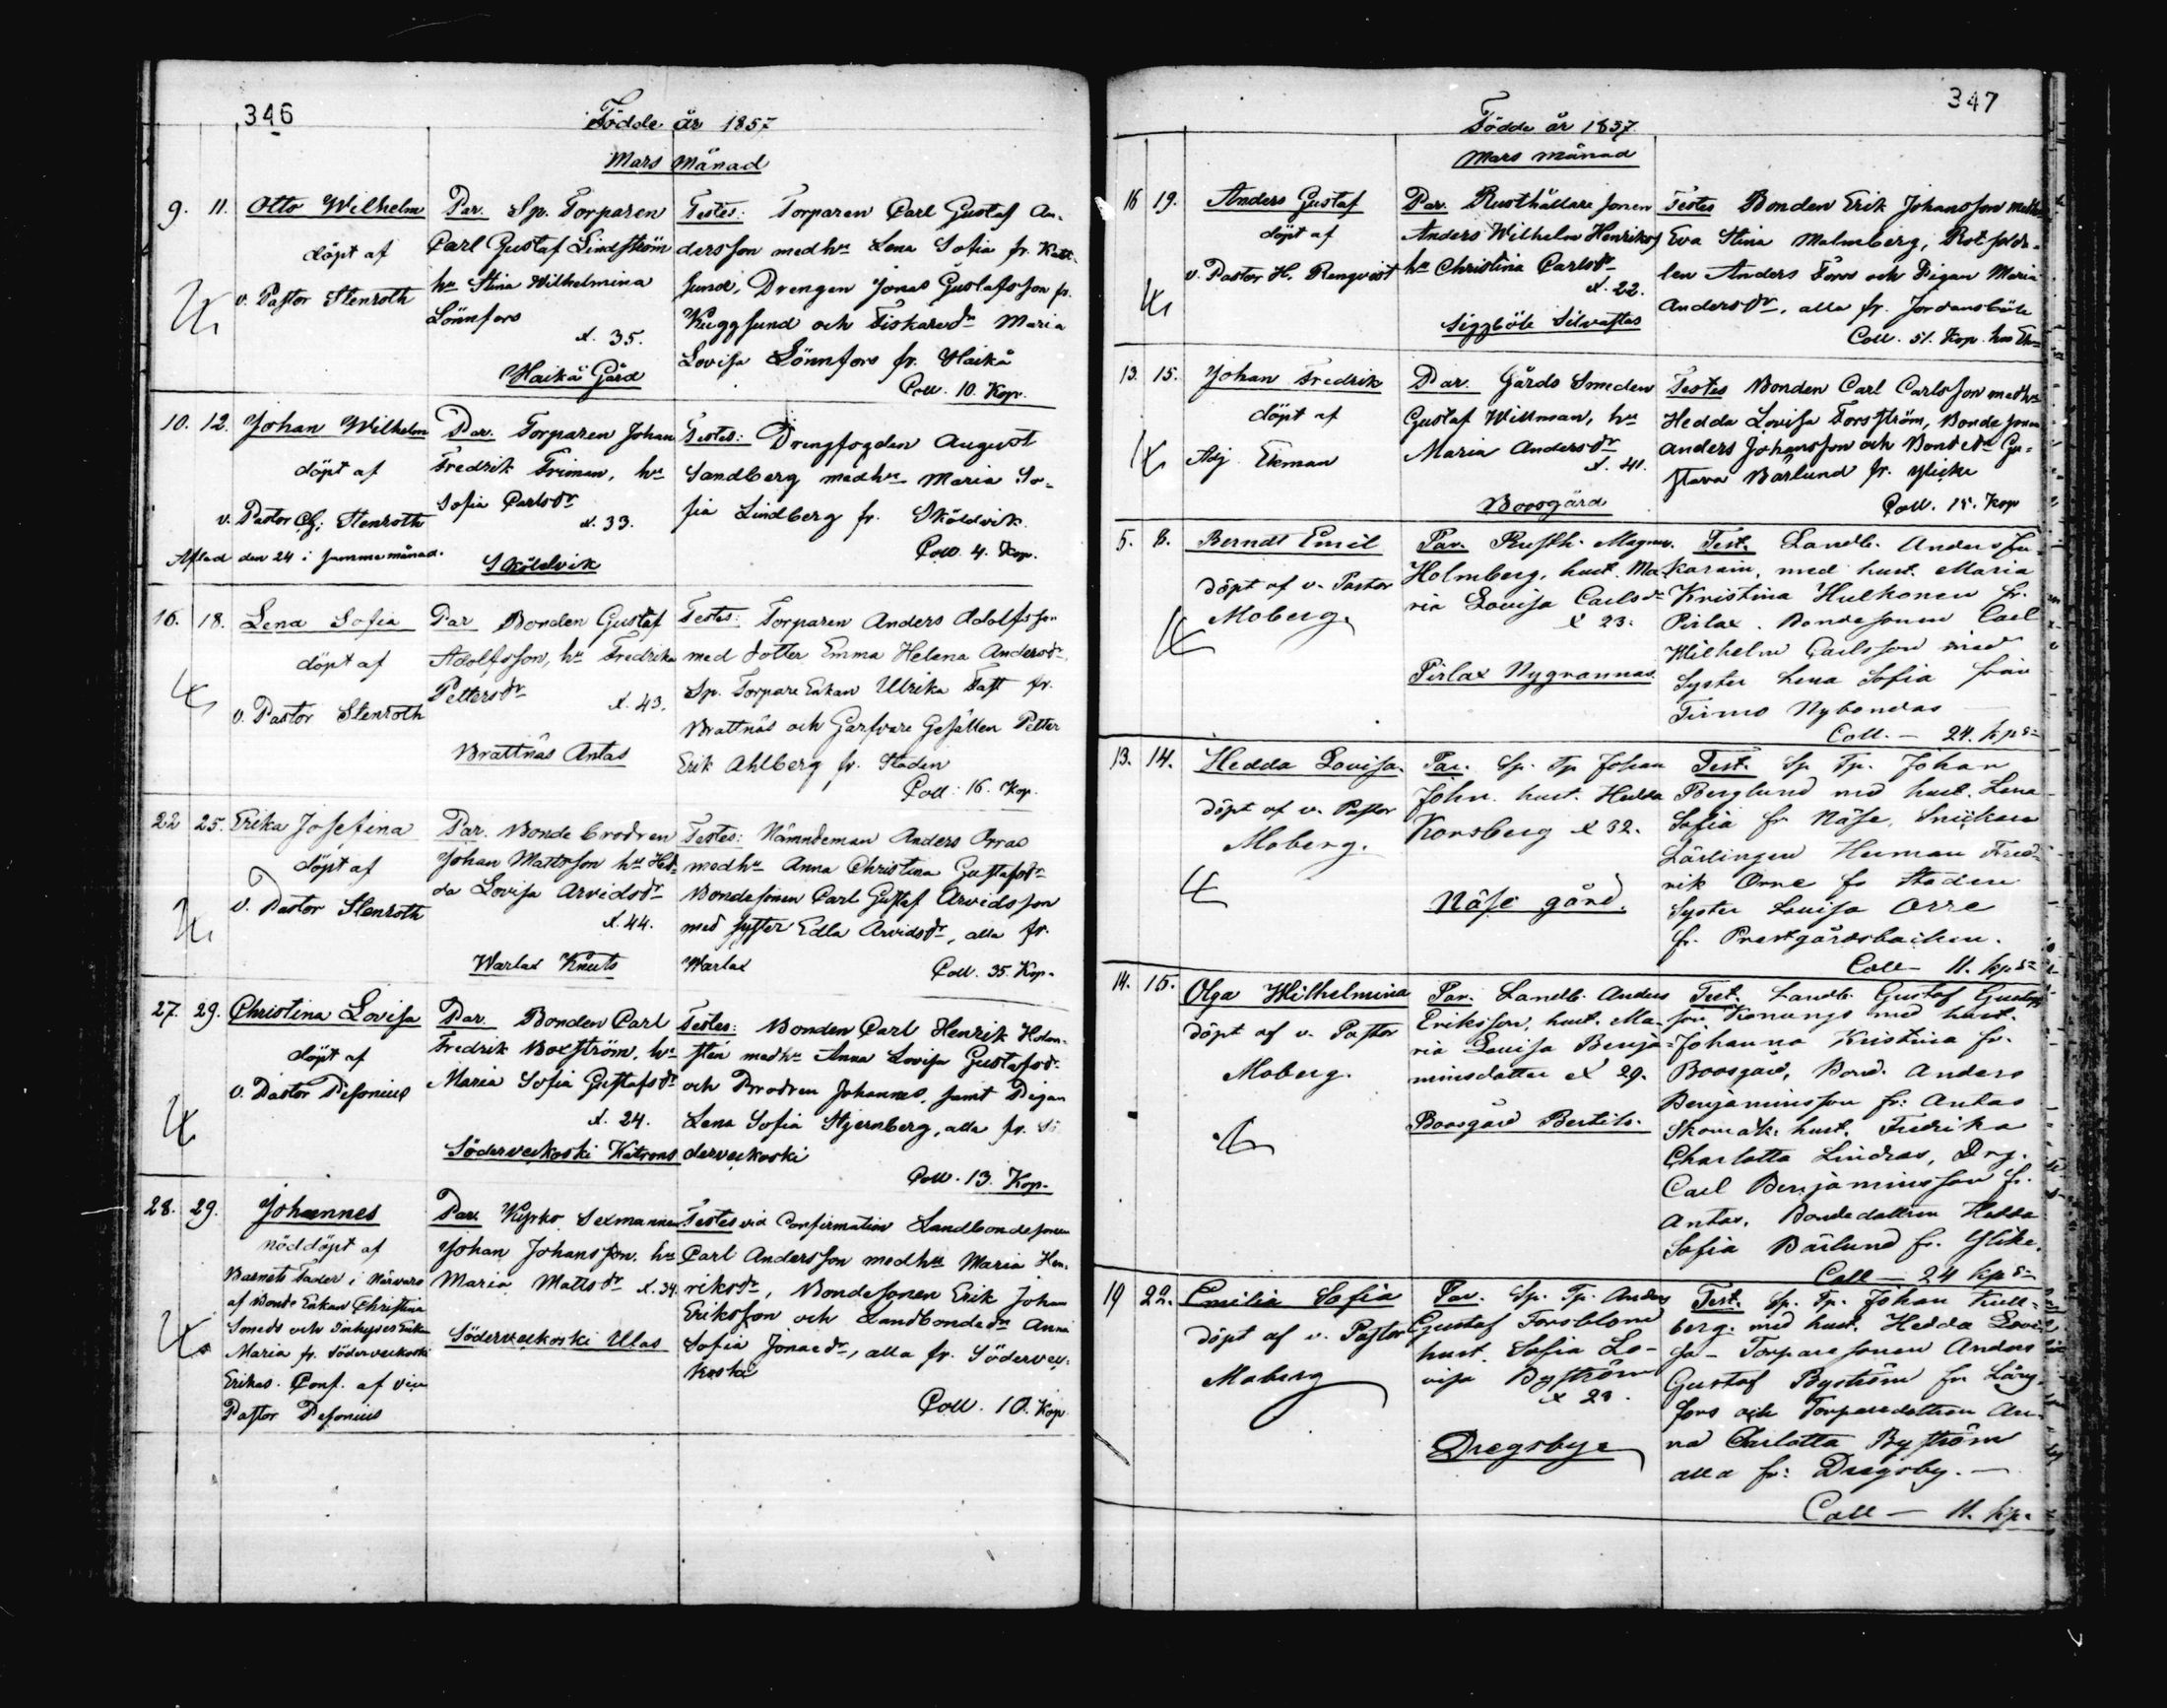 346
Födde år 1857
Mars månad
9. 11. Otto Wilhelm
döpt af
v. Pastor Stenroth
Par. Sp. Torparen
Carl Gustaf Lindström
hu Stina Wilhelmina
Lönnfors
x. 35.
Haikå Gård
Testes: Torparen Carl Gustaf An-
dersson med hu Lena Sofia fr.
sund, Drengen Jonas Gustafsson fr.
Kuggsund och Fiskaredr Maria
Lovisa Lönnfors fr. Haikå
Coll. 10. Kop.
10. 12. Johan Wilhelm
döpt af
v. Pastor Stenroth
Aflad den 24 i samma månad.
Par. Torparen Johan
Fredrik Friman, hu
Sofia Carlsdr
x. 33.
Sköldvik
Testes: Drengfogden August
Sandberg med hu Maria So-
fia Lindberg fr. Sköldvik.
Coll. 4. Kop.
16. 18. Lena Sofia
döpt af
v. Pastor Stenroth
Par Bonden Gustaf
Adolfsson, hu Fredrika
Pettersdr x. 43.
Brattnäs Antas
Testes: Torparen Anders Adolfsson
med dotter Emma Helena Andersdr,
Sp. Torpare Enkan Ulrika Taft fr.
Brattnäs och Garfvare Gesällen Petter
Erik Ahlberg fr. Staden
Coll: 16. Kop.
22 25. Erika Josefina
döpt af
v. Pastor Stenroth
Par. Bonde brodren
Johan Mattsson hu Hed-
da Lovisa Arvidsdr
x. 44.
Warlax Knuts
Testes: Nämndeman Anders Orras
med hu Anna Christina Gustafsdr
Bondesonen Carl Gustaf Arvidsson
med syster Edla Arvidsdr, alla fr.
Warlax Coll. 35. Kop.
27. 29. Christina Lovisa
döpt af
v. Pastor Pesonius
Par. Bonden Carl
Fredrik Boxström, hu
Maria Sofia Gustafsdr
x. 24.
Söderveckoski Katrons
Testes: Bonden Carl Henrik Holm-
stén med hu Anna Lovisa Gustafsdr
och Brodren Johannes, samt Pigan
Lena Sofia Stjernberg, alla fr. Sö
derveckoski
Coll. 13. Kop.
28. 29. Johannes
nöddöpt af
Barnets Fader i närvaro
af Bonde Enkan Christina
Smeds och Inhyses Enkan
Maria fr. Söderveckoski
Erikas. Conf. af vice
Pastor Pesonius
Par. Kyrko Sexmannen
Johan Johansson, hu
Maria Mattsdr x. 34.
Söderveckoski Ulas
Testes vid Confirmation Landbondesonen
Carl Andersson med hu Maria Hen-
riksdr, Bondesonen Erik Johan
Eriksson och Landbondedr Anna
Sofia Jonaedr, alla fr. Södervec-
koski
Coll. 10. Kop.
347
Födde år 1857
Mars månad
16 19. Anders Gustaf
döpt af
v. Pastor H. Renqvist
Par. Rusthållare sonen
Anders Wilhelm Henriks
hu Christina Carlsdr
x. 22.
Siggböle Silvastas
Testes Bonden Erik Johansson med hu
Eva Stina Malmberg, Rot solda-
ten Anders Forss och Pigan Maria
Andersdr, alla fr. Jordansböle
Coll. 51. Kop. hos
13. 15. Johan Fredrik
döpt af
Adj. Ekman
Par. Gårds Smeden
Gustaf Willman, hu
Maria Andersdr
x. 41.
Boosgård
Testes Bonden Carl Carlsson med hu
Hedda Lovisa Forsström, Bonde sonen
Anders Johansson och Bondedr Gu-
stava Bärlund fr. Ylicke
Coll. 15. Kop
5. 8. Berndt Emil
döpt af v. Pastor
Moberg.
Par. Rusth. Magnus
Holmberg, hust. Ma-
ria Lovisa Carlsdr
x 23.
Pirlax Nygrannas
Test. Landb. Anders
karain, med hust. Maria
Kristina Hulkonen fr.
Pirlax. Bondesonen Carl
Wilhelm Carlsson med
Syster Lena Sofia från
Tirmo Nybondas
Coll. — 24. kps
13. 14. Hedda Lovisa.
döpt af v. Pastor
Moberg.
Par. Sp. Tp Johan
John. hust. Hedda
Korsberg x 32.
Näse gård.
Test. Sp Tp. Johan
Berglund med hust. Lena
Sofia fr Näse, Snickare
Lärlingen Herman Fred-
rik Orre fr Staden
Syster Lovisa Orre
fr. Prestgårdsbacken.
Coll — 11. kps
14. 15. Olga Wilhelmina
döpt af v. Pastor
Moberg.
Par. Landb. Anders
Eriksson, hust. Ma-
ria Lovisa Benja-
minsdotter x 29.
Boosgård Bertils.
Test. Landb. Gustaf Gustafs
son Konungs med hust.
Johanna Kristina fr.
Boosgård, Bond. Anders
Benjaminsson fr: Antas
Skomak. hust. Fredrika
Charlotta Lindros, Drg.
Carl Benjaminsson fr.
Antas, Bondedottren Hedda
Sofia Bärlund fr. Ylike.
Coll — 24 kps
19 22. Emilia Sofia
döpt af v. Pastor
Moberg
Par. Sp. Tp. Anders
Gustaf Forsblom
hust. Sofia Lo-
visa Byström
x 23.
Dregsby
Test. Sp. Tp. Johan Kull-
berg. med hust. Hedda Lovi-
sa — Torparesonen Anders
Gustaf Byström fr
fors och Torparedottren An-
na Charlotta Byström
alla fr: Dregsby. —
Coll — 11. kp.